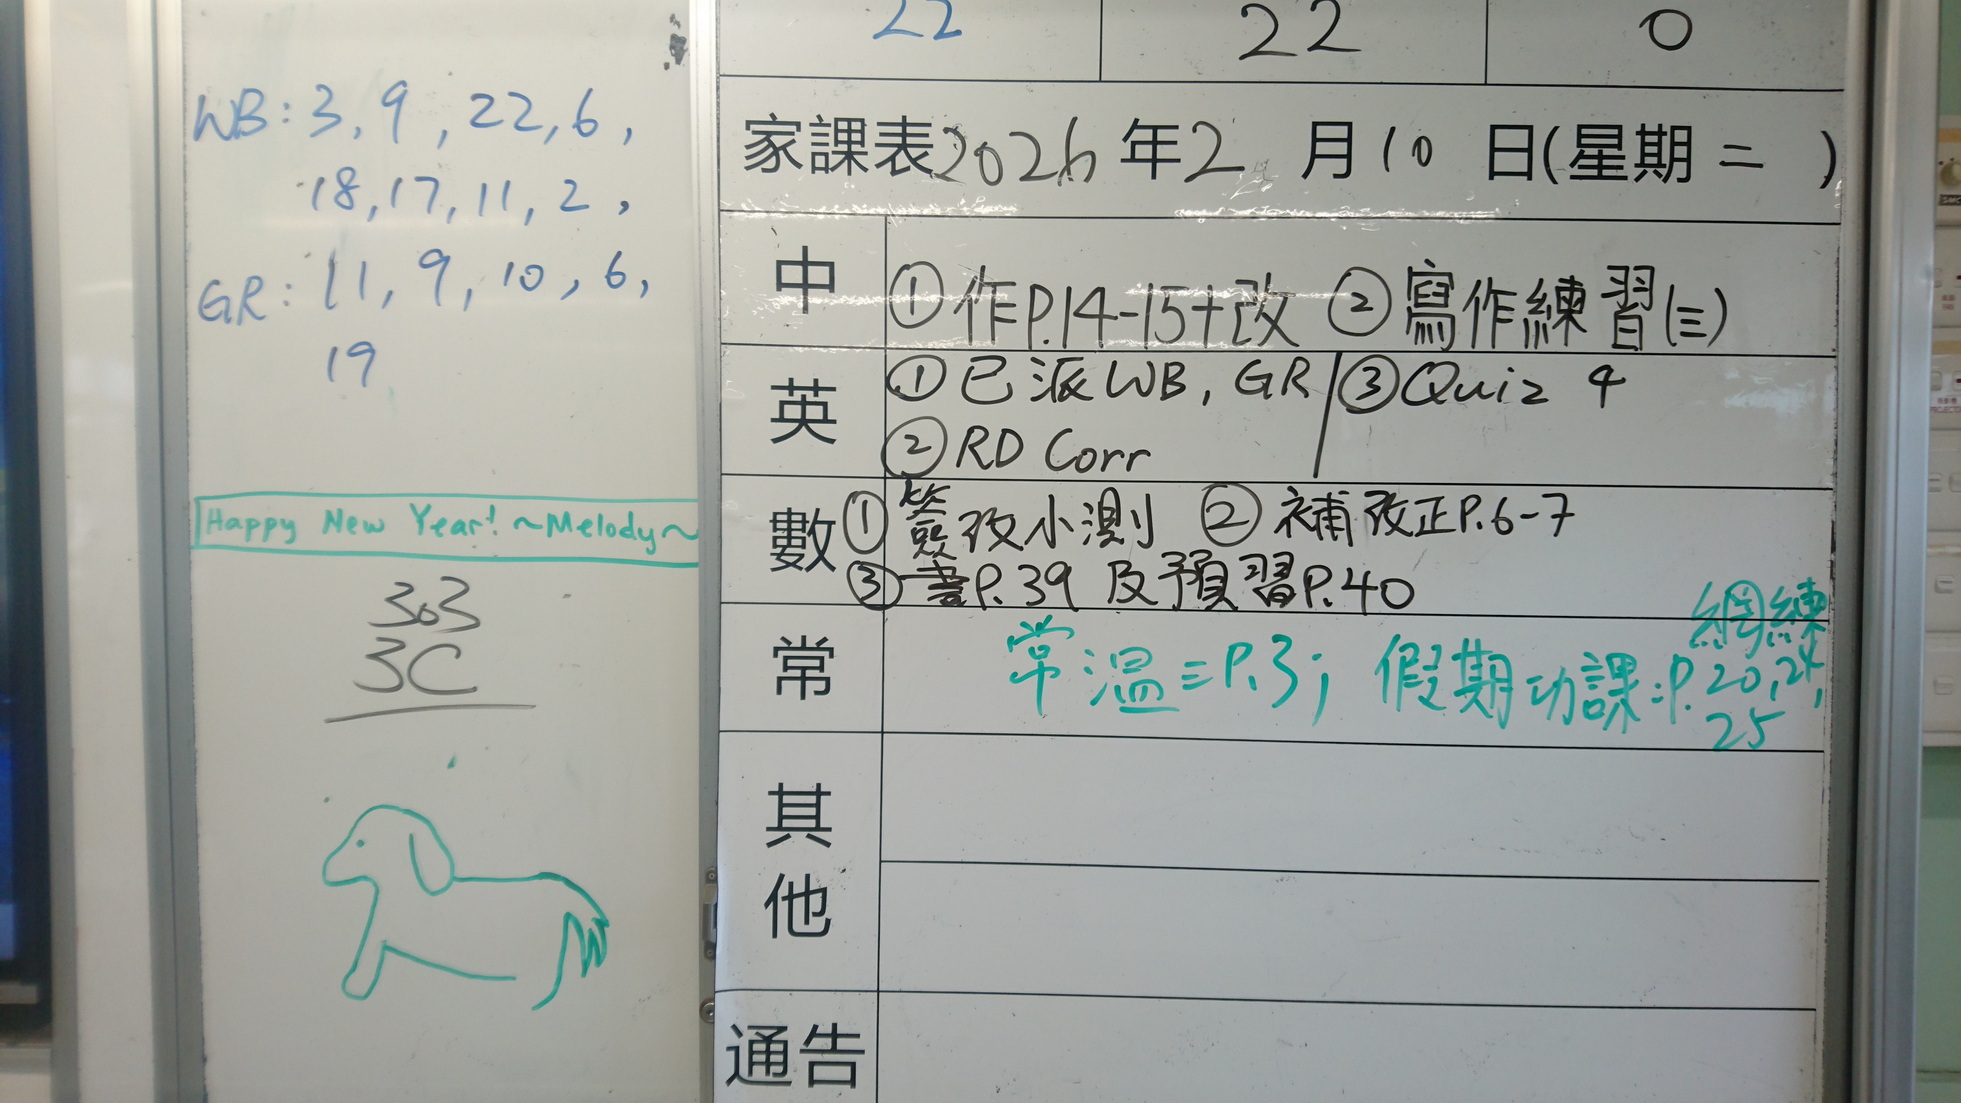 WB: 3, 9, 22, 6,
18, 17, 11, 2,
GR: 11, 9, 10, 6,
19
Happy New Year! ~Melody~
303
3C
22 22 0
家課表 2026 年 2 月 10 日(星期 二 )
中 ① 作P.14-15+改 ② 寫作練習(三)
英 ① 已派WB, GR / ③ Quiz 4
② RD Corr
數 ① 簽改小測 ② 補改正P.6-7
③ 書P.39 及預習P.40
常 常溫=P.3; 假期功課:P. 網練
20, 24,
25
其他
通告